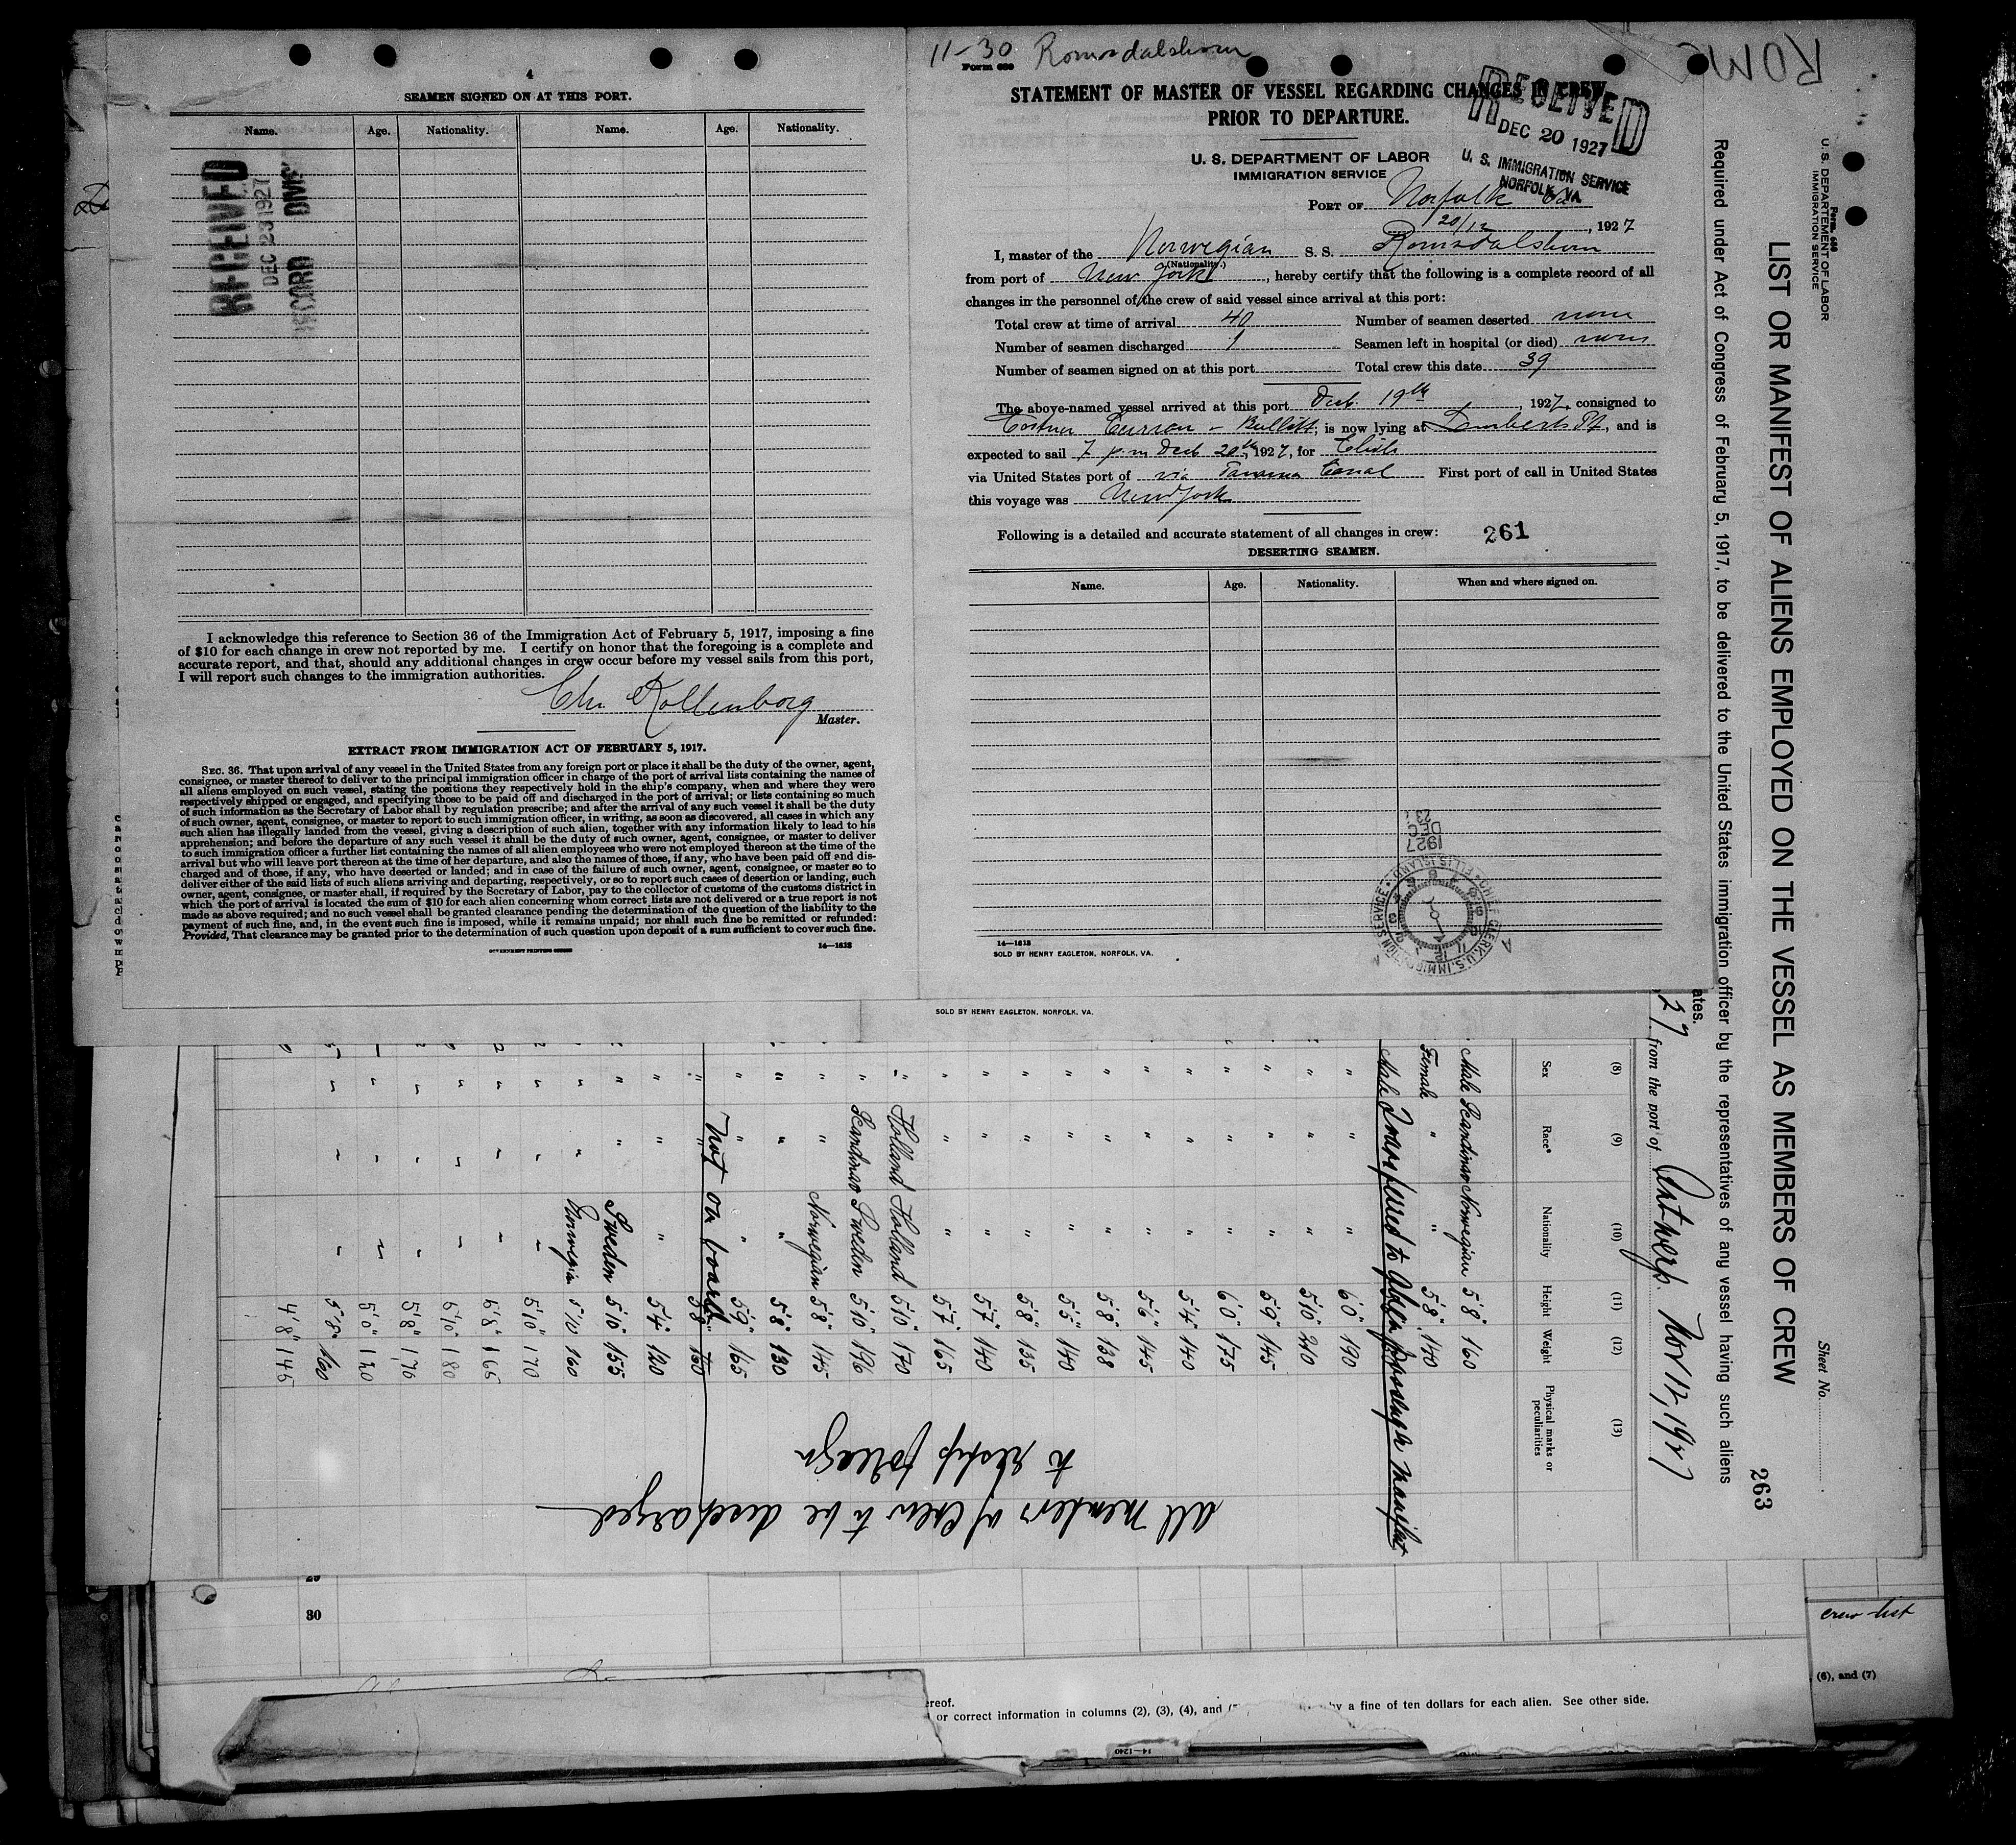 4
SEAMEN SIGNED ON AT THIS PORT.
Name. Age. Nationality. Name. Age. Nationality.
RECEIVED
DEC 23 1927
RECORD DIVIS
I acknowledge this reference to Section 36 of the Immigration Act of February 5, 1917, imposing a fine
of $10 for each change in crew not reported by me. I certify on honor that the foregoing is a complete and
accurate report, and that, should any additional changes in crew occur before my vessel sails from this port,
I will report such changes to the immigration authorities.
Chr Kollenborg
Master.
EXTRACT FROM IMMIGRATION ACT OF FEBRUARY 5, 1917.
SEC. 36. That upon arrival of any vessel in the United States from any foreign port or place it shall be the duty of the owner, agent,
consignee, or master thereof to deliver to the principal immigration officer in charge of the port of arrival lists containing the names of
all aliens employed on such vessel, stating the positions they respectively hold in the ship's company, when and where they were
respectively shipped or engaged, and specifying those to be paid off and discharged in the port of arrival; or lists containing so much
of such information as the Secretary of Labor shall by regulation prescribe; and after the arrival of any such vessel it shall be the duty
of such owner, agent, consignee, or master to report to such immigration officer, in writing, as soon as discovered, all cases in which any
such alien has illegally landed from the vessel, giving a description of such alien, together with any information likely to lead to his
apprehension; and before the departure of any such vessel it shall be the duty of such owner, agent, consignee, or master to deliver
to such immigration officer a further list containing the names of all alien employees who were not employed thereon at the time of the
arrival but who will leave port thereon at the time of her departure, and also the names of those, if any, who have been paid off and dis-
charged and of those, if any, who have deserted or landed; and in case of the failure of such owner, agent, consignee, or master so to
deliver either of the said lists of such aliens arriving and departing, respectively, or so to report such cases of desertion or landing, such
owner, agent, consignee, or master shall, if required by the Secretary of Labor, pay to the collector of customs of the customs district in
which the port of arrival is located the sum of $10 for each alien concerning whom correct lists are not delivered or a true report is not
made as above required; and no such vessel shall be granted clearance pending the determination of the question of the liability to the
payment of such fine, and, in the event such fine is imposed, while it remains unpaid; nor shall such fine be remitted or refunded:
Provided, That clearance may be granted prior to the determination of such question upon deposit of a sum sufficient to cover such fine.
GOVERNMENT PRINTING OFFICE 14—1618
11-30 Romsdalshorn
Form 689
STATEMENT OF MASTER OF VESSEL REGARDING CHANGES IN CREW
PRIOR TO DEPARTURE.
RECEIVED
DEC 20 1927
U. S. IMMIGRATION SERVICE
NORFOLK, VA.
U. S. DEPARTMENT OF LABOR
IMMIGRATION SERVICE
PORT OF Norfolk Va
20/12, 1927
I, master of the Norwegian S. S. Romsdalshorn
(Nationality.)
from port of New York, hereby certify that the following is a complete record of all
changes in the personnel of the crew of said vessel since arrival at this port:
Total crew at time of arrival 40 Number of seamen deserted none
Number of seamen discharged 1 Seamen left in hospital (or died) none
Number of seamen signed on at this port Total crew this date 39
The above-named vessel arrived at this port Decb. 19th, 1927, consigned to
Costner Curran - Bullitt, is now lying at Lamberts Pt, and is
expected to sail 7 p.m Decb 20th, 1927, for Chile
via United States port of via Panama Canal First port of call in United States
this voyage was New York
Following is a detailed and accurate statement of all changes in crew: 261
DESERTING SEAMEN.
Name. Age. Nationality. When and where signed on.
1927
DEC
23
CHIEF CLERK, U.S. IMMIGRATION SERVICE ELLIS ISLAND
14—1618
SOLD BY HENRY EAGLETON, NORFOLK, VA.
SOLD BY HENRY EAGLETON, NORFOLK, VA.
ROM
Form 680
U. S. DEPARTMENT OF LABOR
IMMIGRATION SERVICE
Sheet No.
263
LIST OR MANIFEST OF ALIENS EMPLOYED ON THE VESSEL AS MEMBERS OF CREW
Required under Act of Congress of February 5, 1917, to be delivered to the United States immigration officer by the representatives of any vessel having such aliens
ates.
27 from the port of Antwerp. Nov 12, 1927
(8) (9) (10) (11) (12) (13)
Sex Race* Nationality Height Weight Physical marks or peculiarities
Male Scandinav Norwegian 5'8" 160
Female " " 5'8" 140
Male Transferred to Alien passenger manifest
" " " 6'0" 190
" " " 5'10" 240
" " " 5'9" 145
" " " 6'0" 175
" " " 5'4" 140
" " " 5'6" 145
" " " 5'8" 138
" " " 5'5" 140
" " " 5'8" 135
" " " 5'7" 140
" " " 5'7" 165
" Holland Holland 5'10" 170
" Scandinav Sweden 5'10" 196
" " Norwegian 5'8" 145
" " " 5'8" 130
" " " 5'9" 165
" Not on board 5'8" 150
" " " 5'4" 120
" " Sweden 5'10" 155
" " Norwegia 5'10 160
" " " 5'10" 170
" " " 5'8" 165
" " " 5'10" 180
" " " 5'8" 176
" " " 5'0" 120
" " " 5'8" 160
4'8" 145
all members of Crew to be discharged
to reship foreign
29
30
crew list
(6), and (7)
ereof.
or correct information in columns (2), (3), (4), and by a fine of ten dollars for each alien. See other side.
14—1240